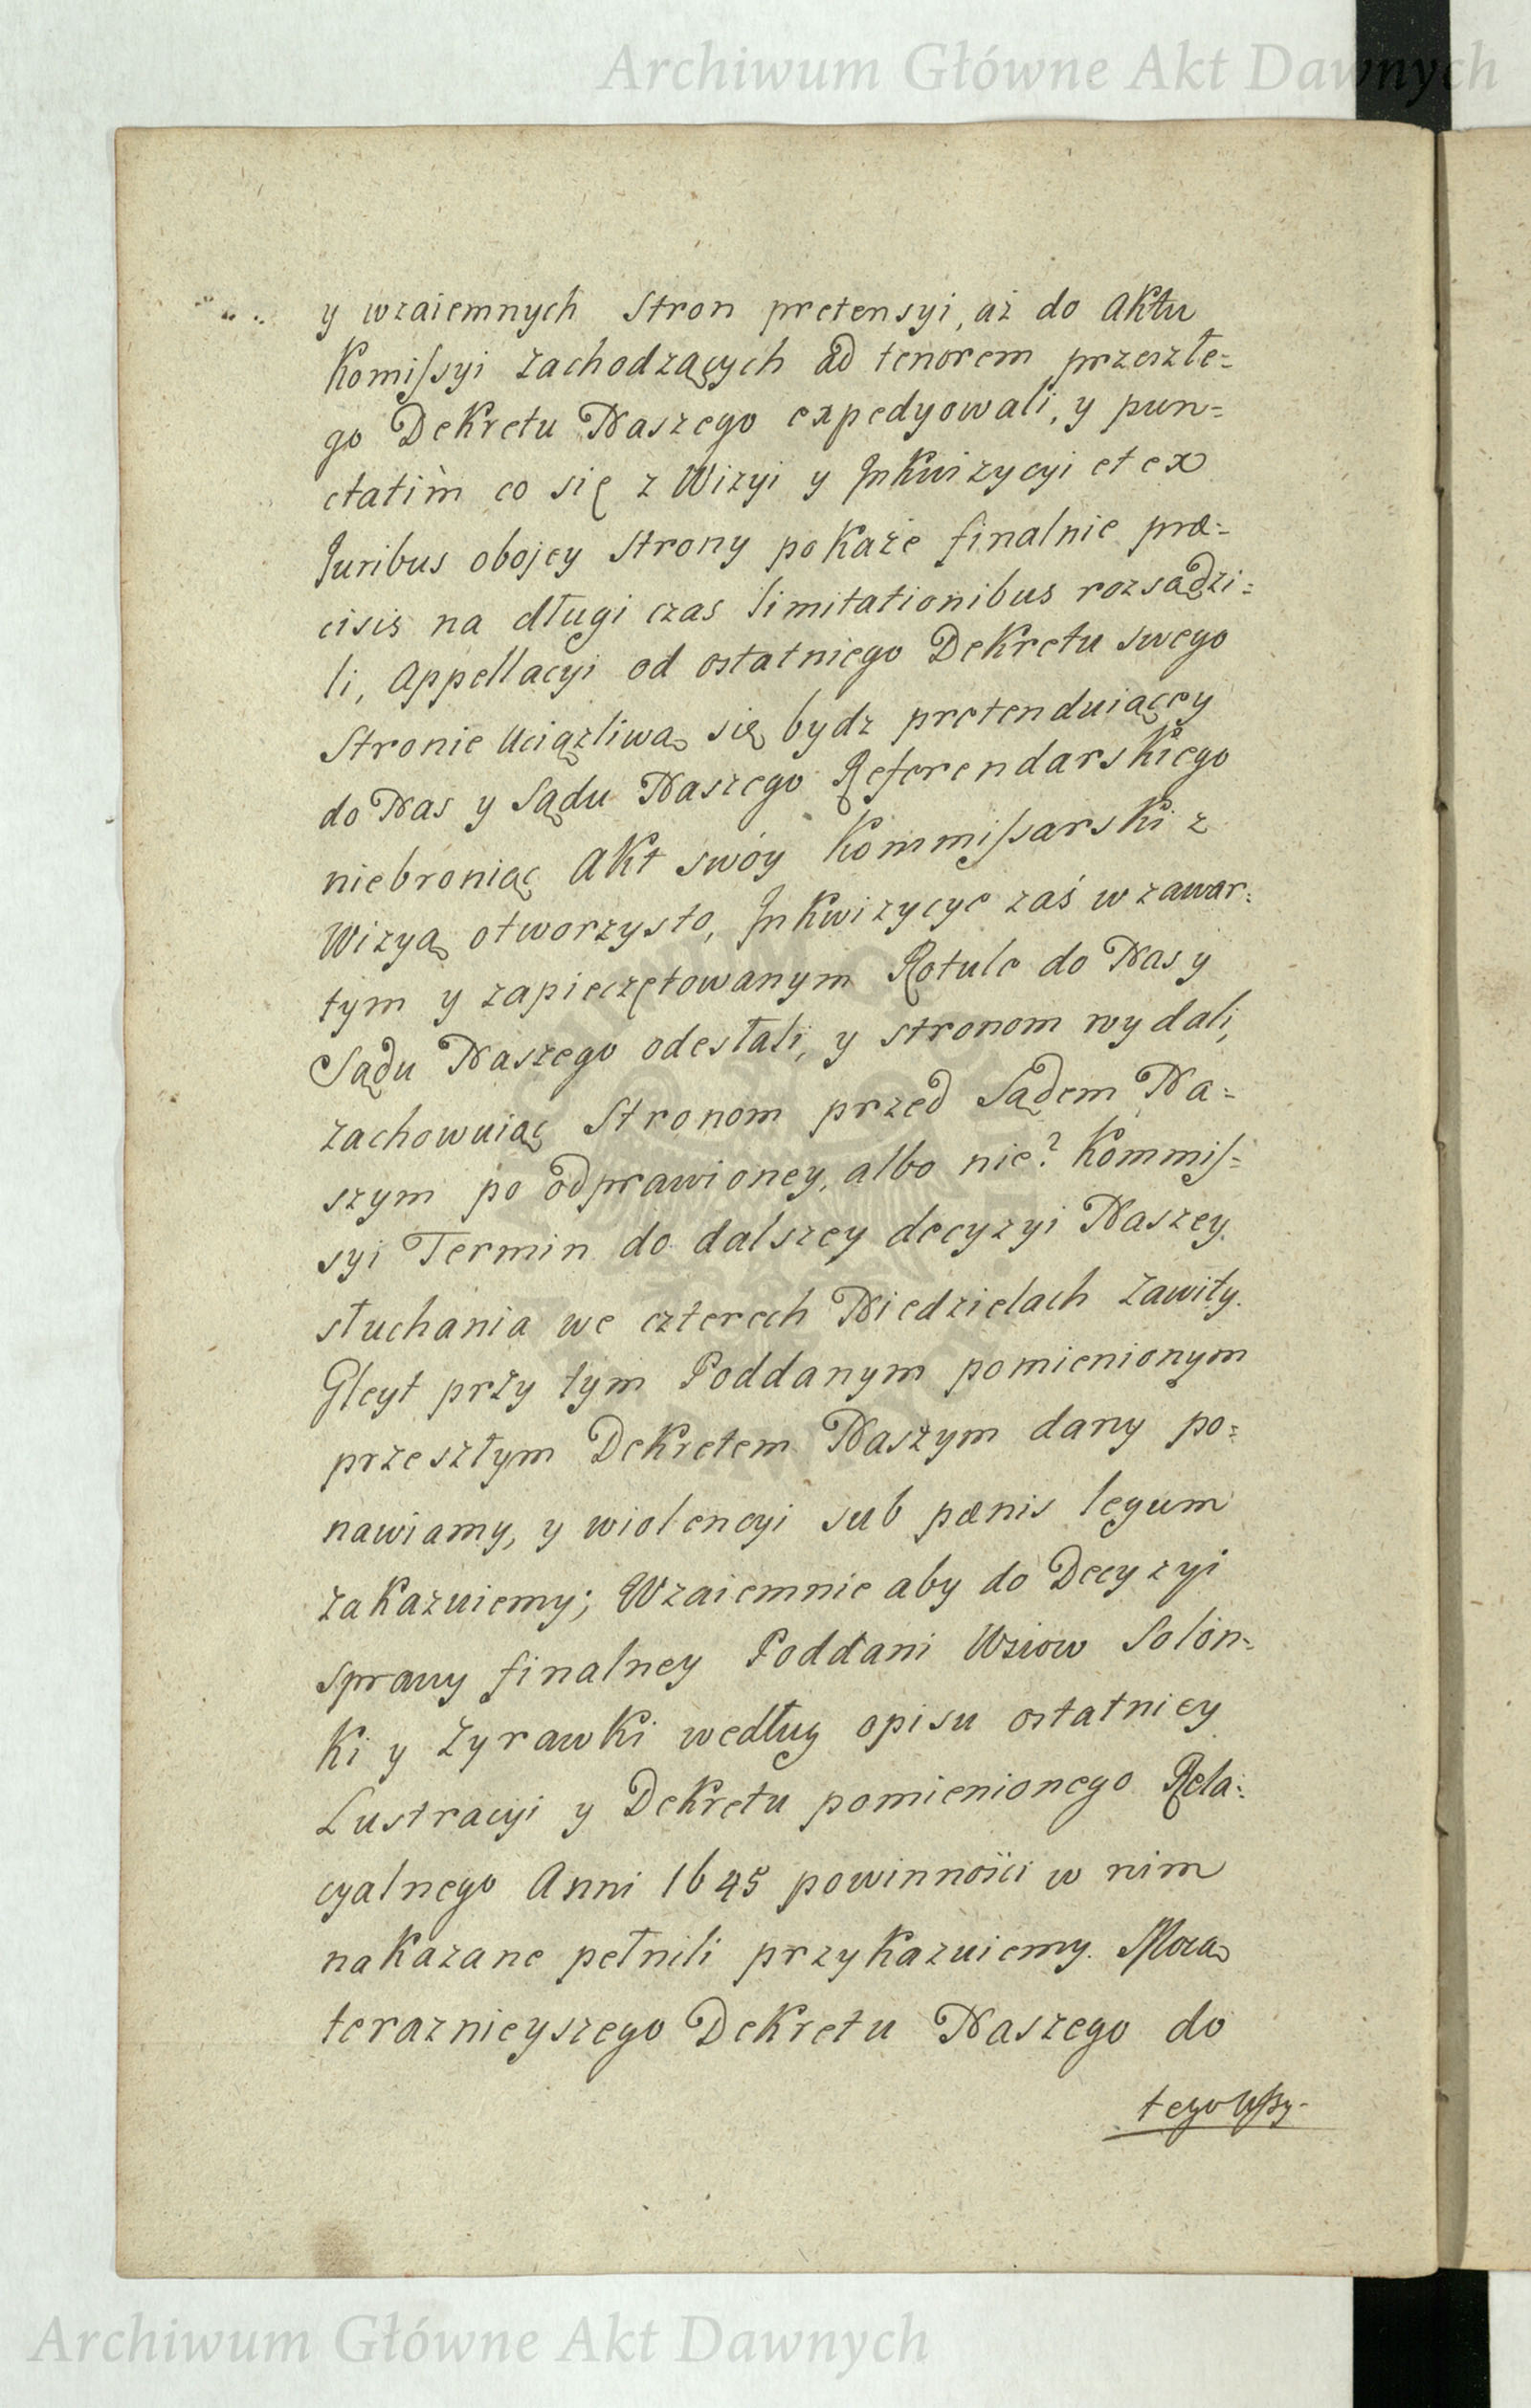 Archiwum Główne Akt Dawnych
y wzaiemnych Stron pretensyi, aż do Aktu
Komissyi zachodzących ad tenorem przeszłe=
go Dekretu Naszego expedyowali, y pun=
ctatìm co się z Wizyi y Inkwizycyi et ex
Juribus obojey Strony pokaże finalnie præ=
cisis na długi czas limitationibus rozsądzi=
li, Appellacyi od ostatniego Dekretu swego
Stronie uciążliwą się bydz pretenduiącey
do Nas y Sądu Naszego Referendarskiego
niebroniąc Akt swóy Kommissarski z
Wizyą otworzysto, Inkwizycye zaś w zawar=
tym y zapieczętowanym Rotule do Nas y
Sądu Naszego odesłali, y stronom wydali,
zachowuiąc Stronom przed Sądem Na=
szym po odprawioney, albo nie? Kommis=
syi Termin do dalszey decyzyi Naszey
słuchania we czterech Niedzielach zawity.
Gleyt przy tym Poddanym pomienionym
przeszłym Dekretem Naszym dany po=
nawiamy, y wiolencyi sub pœnis legum
zakazuiemy; Wzaiemnie aby do Decyzyi
sprawy finalney Poddani Wsiow Solon=
ki y Zyrawki według opisu ostatniey
Lustracyi y Dekretu pomienionego Rela=
cyalnego Anni 1645 powinności w nim
nakazane pełnili przykazuiemy. Mocą
teraznieyszego Dekretu Naszego do
tego
Archiwum Główne Akt Dawnych